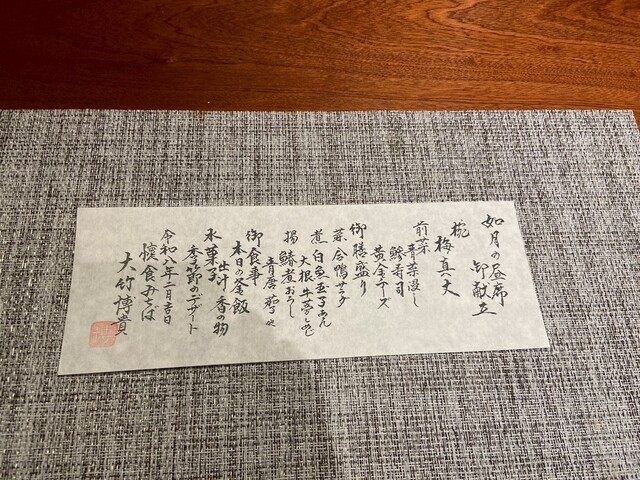 如月の昼席
御献立
椀
梅真丈
前菜
青菜浸し
鯵寿司
黄金チーズ
御膳盛り
菜 合鴨サラダ
煮 白魚玉子あん
大根
揚 鰆煮おろし
青唐
御食事
本日の釜飯
香の物
水菓子
季節のデザート
令和八年二月吉日
懐食みちば
大竹博貴